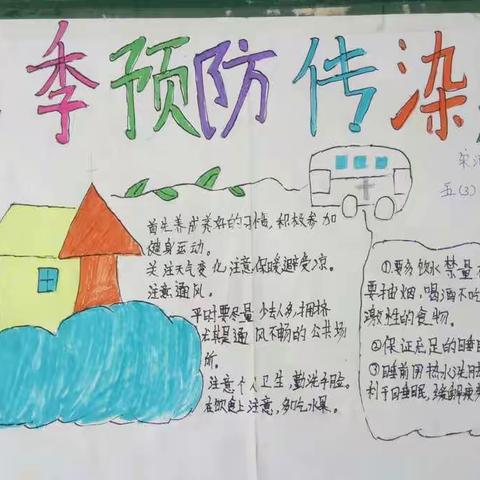 季预防传染
首先养成美好的习惯,积极参加
健身运动。
关注天气变化,注意保暖避免受凉。
注意通风。
平时要尽量少去人多,拥挤
尤其是通风不畅的公共场
所。
注意个人卫生,勤洗手脸。
在饮食上注意,多吃水果。
五(3)
①要多饮水禁量
要抽烟,喝酒不吃
激性的食物。
②保证充足的睡眠
③睡前用热水洗
利于睡眠,缓解疲劳